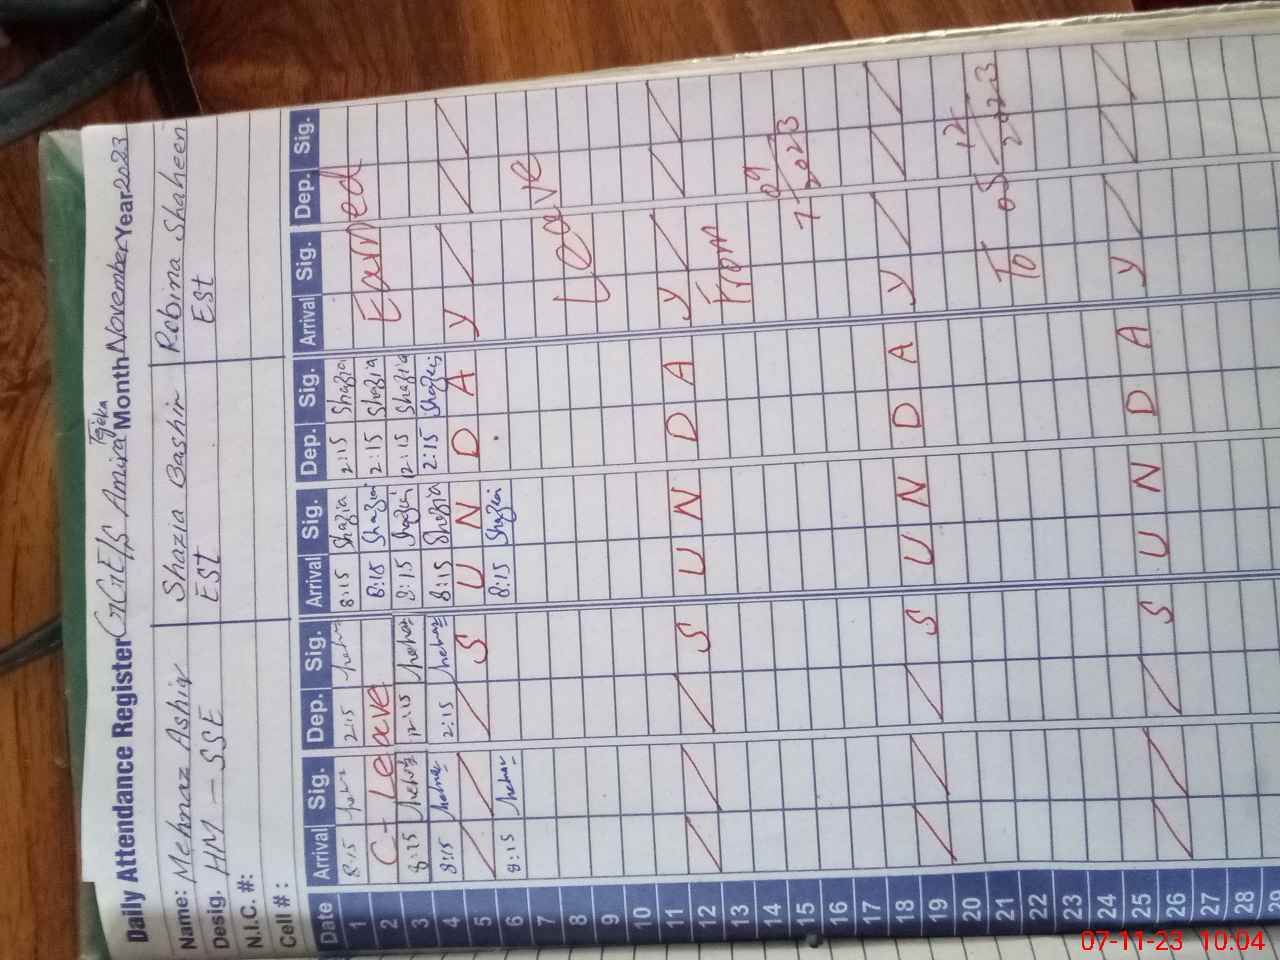 Daily Attendance Register GGE/S Amira Tejeka Month November Year 2023
Name: Mehnaz Ashiq Shazia Bashir Rebina Shaheen
Desig. HM - SSE EST EST
N.I.C. #:
Cell #:
Date Arrival Sig. Dep. Sig. Arrival Sig. Dep. Sig. Arrival Sig. Dep. Sig.
1 8:15 2:15 8:15 Shazia 2:15 Shazia Earned
2 C- Leave 8:15 Shazia 2:15 Shazia
3 8:15 12:15 8:15 Shazia 12:15 Shazia
4 8:15 2:15 8:15 Shazia 2:15 Shazia
5 S U N D A Y
6 8:15 8:15 Shazia
7 Leave
8
9
10
11
12 S U N D A Y
13 From
14
15
16
17
18
19 S U N D A Y
20
21 To 05 12 2023
22
23
24
25
26 S U N D A Y
27
28
29
07-11-23 10:04